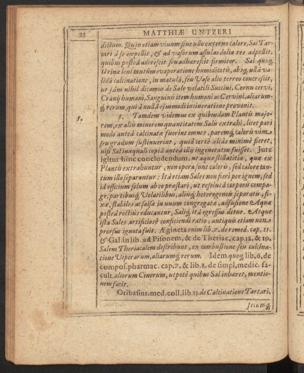 22 MATTHIÆ UNTZERI
dictum. Quin etiam vinum sine ullo externo calore, Sal Tar-
tari à se expellit, & ad vasorum assulas dolia
quibus postea adhærescit firmiter. Sal quoq;
Urinæ leni tantùm evaporatione humiditatis, absq; ullâ va-
lidâ calcinatione, in matula, seu Vase alio terreo concrescit,
ut jam nihil dicam de Sale volatili Succini, Cornu cervi,
Cranij humani, Sanguinis item humani ac Cervini, aliarum-
q; rerum, qui à nullâ igni incineratione provenit.
5. 5. Tandem videmus ex quibusdam Plantis majo-
rem, ex aliis minorem quantitatem Salis extrahi, licet pari
modo antea calcinatæ fuerint omnes, paremq; caloris vim
seu gradum sustinuerint, quod certè aliâs minimè fieret,
nisi Sal inæquali copiâ antea illis ingeneratum fuisset. Jure
igitur hinc concludendum: ut aqua stillatitia, quæ ex
Plantis extrahuntur, non opera sunt caloris, sed calore tan-
tum ille separantur: Ita etiam Sales non fieri per ignem, sed
id officium solum abeo præstari, ut rejectâ compositi compa-
ge, partibusq; Volatilibus, aliisq; heterogeneis separatis
stabiles ac salsæ in unum congregatæ, affusione Aquæ
postea rectiùs educantur, Salisq; itâ egressus detur. Atque
ista Sales artificiosè conficiendi ratio, antiquis etiam non
prorsus ignota fuit. Ægineta enim lib. 7. de re med. cap. 11.
& Gal. in lib. ad Pisonem, & de Theriac. cap. 18. & 19.
Salem Theriacalem describunt, ex combustione seu calcina-
tione Viperarum, aliarumq; rerum. Idem quoq; lib. 6. de
compos. pharmac. cap. 7. & lib. 8. de simpl. medic. fa-
cult. aliorum Cinerum, utpotè quibus Sal inhæret, mentio-
nem facit.
Oribasius med. coll. lib. 15. de Calcinatione Tartari,